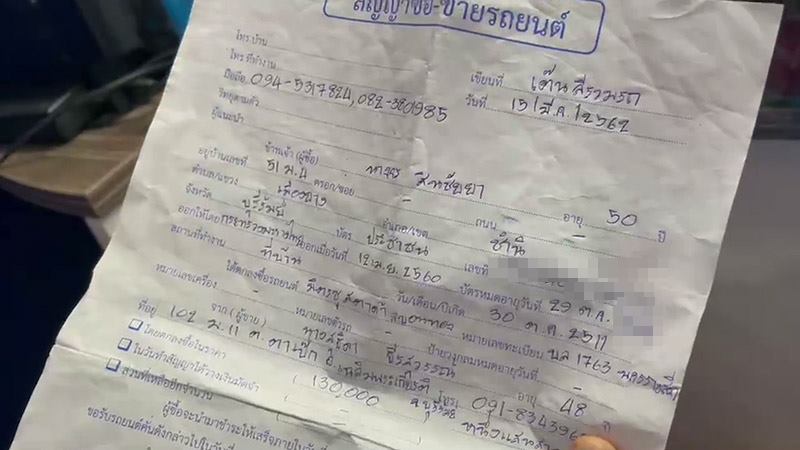 สัญญาซื้อ-ขายรถยนต์
โทร.บ้าน
โทร.ที่ทำงาน
มือถือ 094-5317824, 082-3801985
วิทยุตามตัว
ผู้แนะนำ
เขียนที่ เต๊นส์รวมรถ
วันที่ 15 / มี.ค. / 2562
ข้าพเจ้า (ผู้ซื้อ) นาย สิทธิชัย อายุ 50 ปี
อยู่บ้านเลขที่ 51 ม.4 ตรอก/ซอย - ถนน -
ตำบล/แขวง เมืองยาง อำเภอ/เขต ชำนิ
จังหวัด บุรีรัมย์ บัตร ประชาชน เลขที่
ออกให้โดย กระทรวงมหาดไทย ออกเมื่อวันที่ 12 เม.ย. 2560 บัตรหมดอายุวันที่ 29 ต.ค.
สถานที่ทำงาน ที่บ้าน วัน/เดือน/ปีเกิด 30 ต.ค. 2511
ได้ตกลงซื้อรถยนต์ มิตซู สตาด้า สี หมายเลขทะเบียน บล 1763 นครราชสีมา
หมายเลขเครื่อง - หมายเลขตัวถัง - ป้ายวงกลมหมดอายุวันที่ -
จาก (ผู้ขาย) อายุ 48 ปี
ที่อยู่ 102 ม.11 ต.ตาเป๊ก อ.เฉลิมพระเกียรติ จ.บุรีรัมย์ โทร. 091-834396
โดยตกลงซื้อในราคา 130,000
ในวันทำสัญญาได้วางเงินมัดจำ
ส่วนที่เหลืออีกจำนวน
ผู้ซื้อจะนำมาชำระให้เสร็จภายในวันที่
ขอรับรถยนต์คันดังกล่าวไปในวันที่